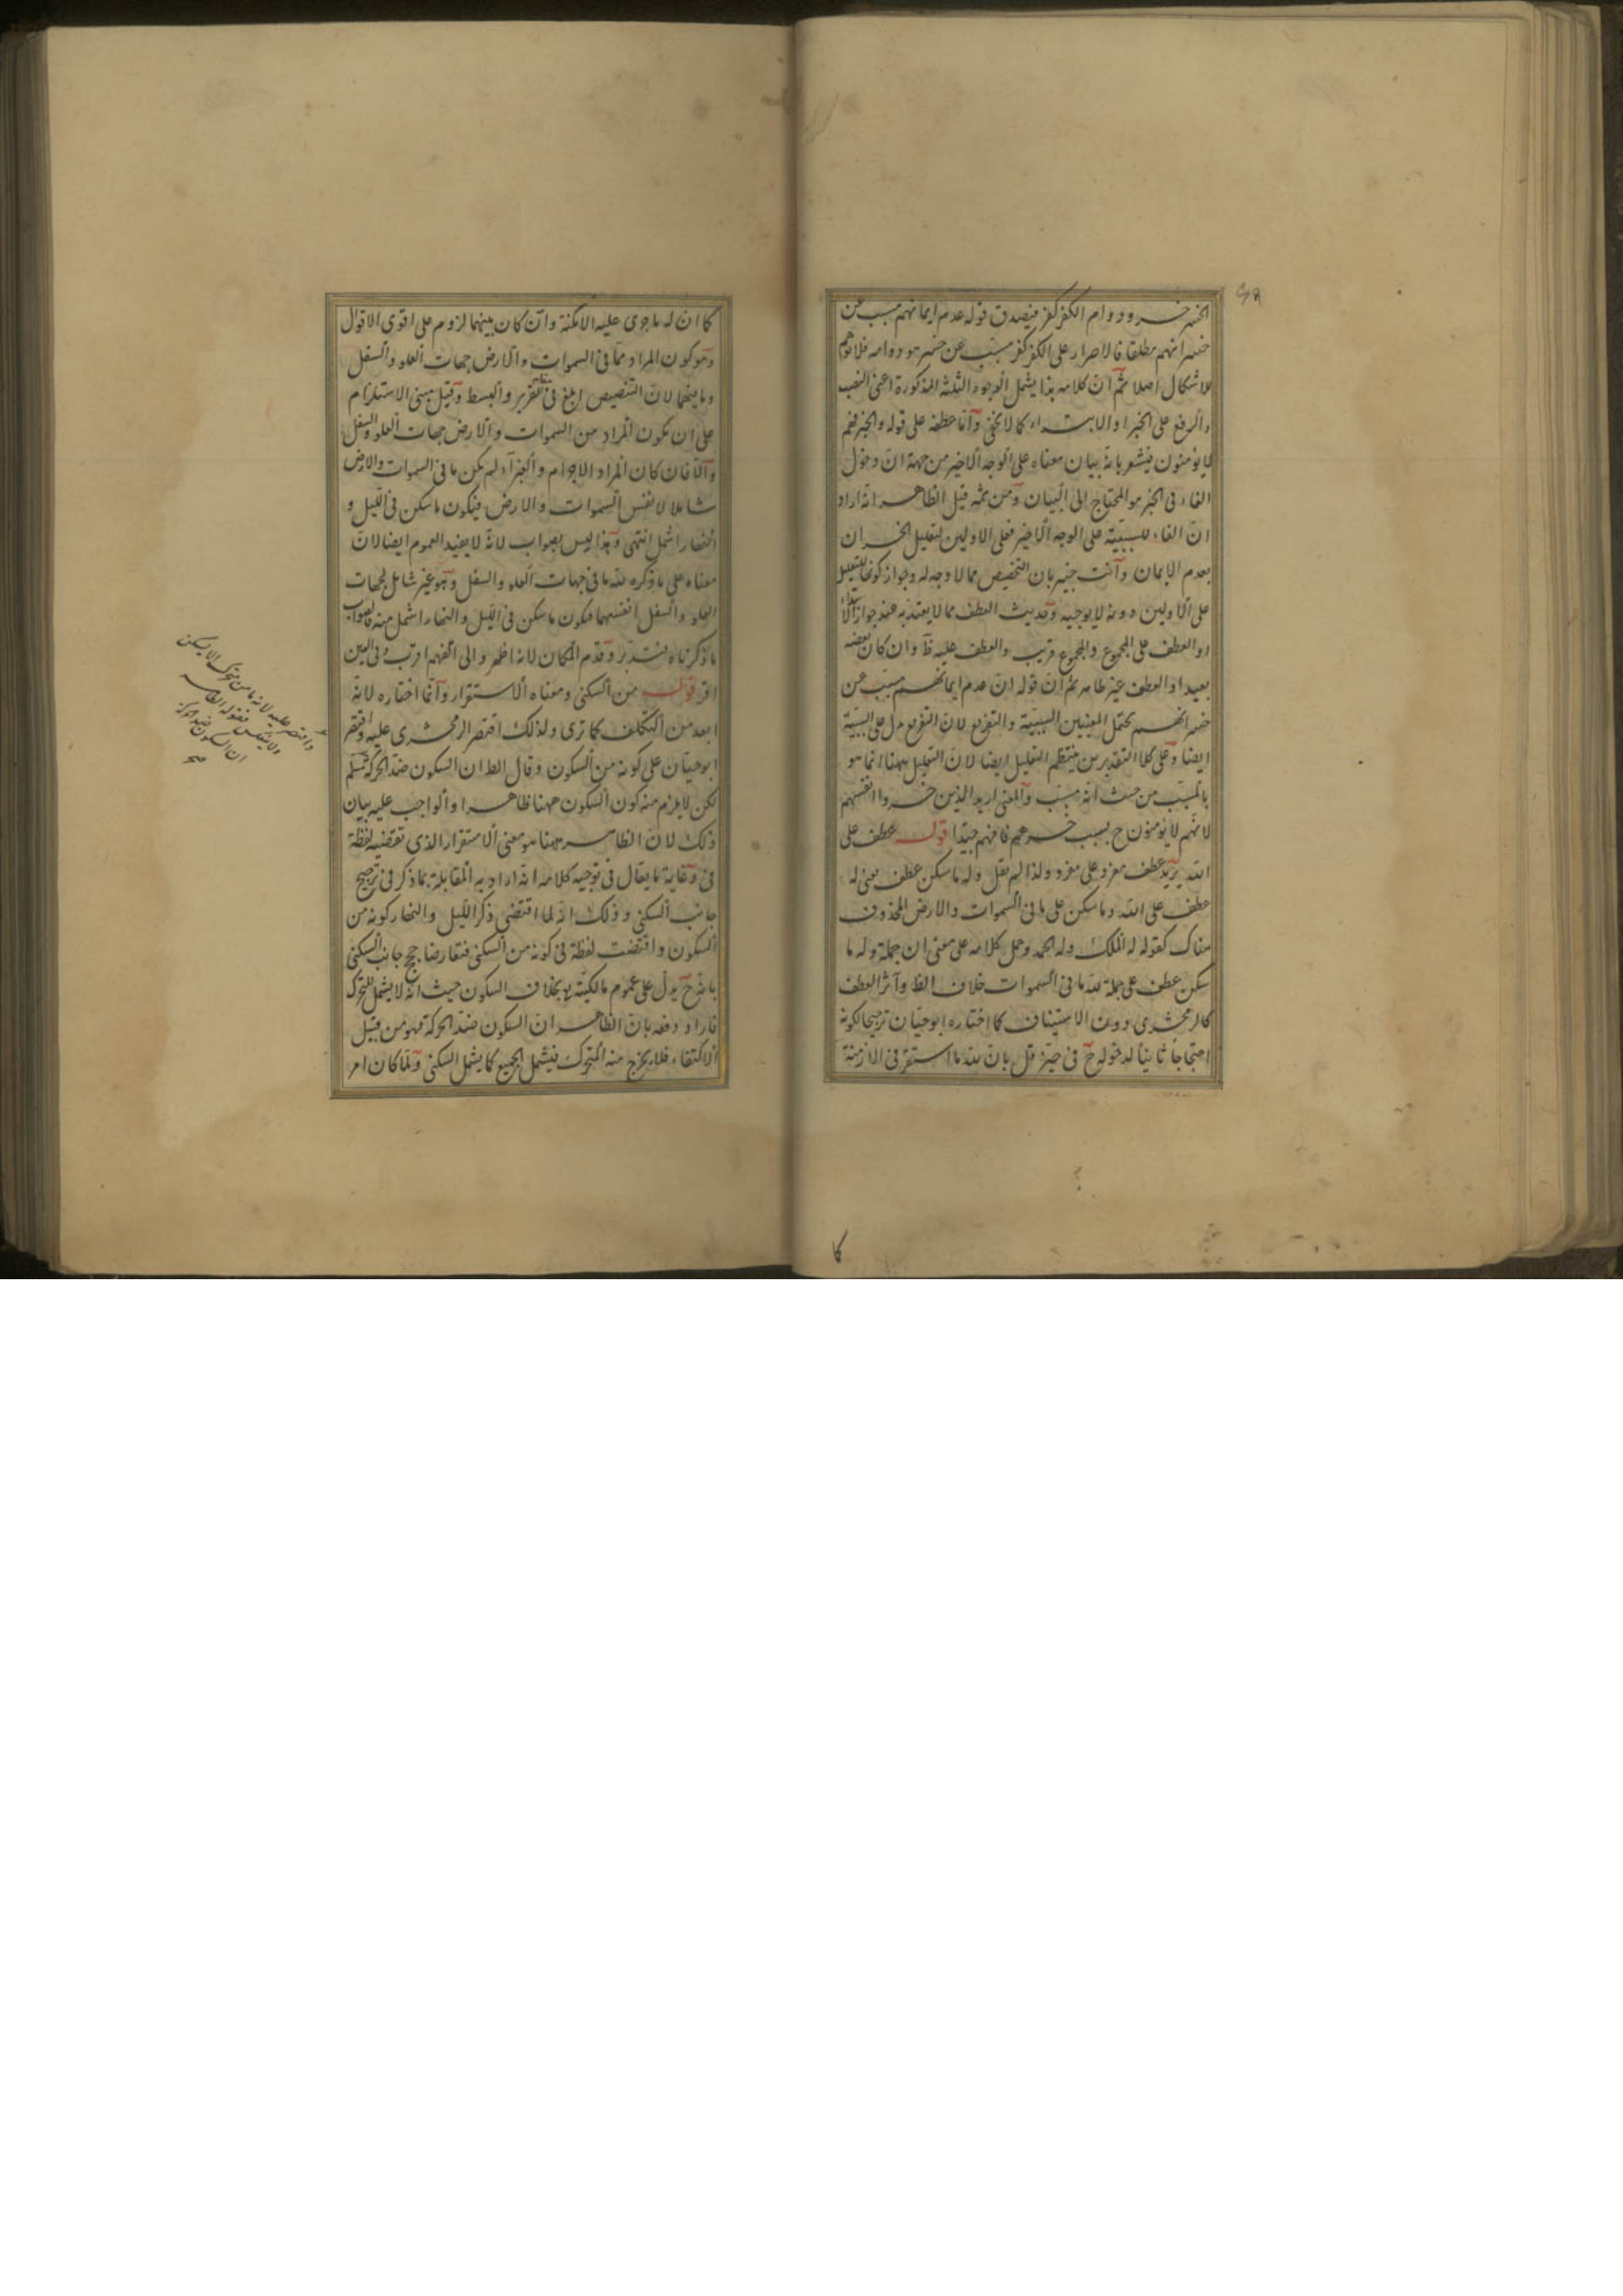 الخسر خسر ودوام الكفر كفر فيصدق قوله عدم ايمانهم مسبب عن
خسرانهم مطلقا فالاصرار على الكفر كفر مسبب عن خسر هو دوامه فلا
للاشكال اصلا ثم ان كلامه هذا يشمل الوجوه الثلثة المذكورة اعنى النصب
والرفع على الخبر او الابتداء كما لا يخفى وآما عطفه على قوله والخبر فهم
لا يؤمنون فيشعر بانه بيان معناه على الوجه الاخير من جهة ان دخول
الفاء فى الخبر هو المحتاج الى البيان ومن ثمه قيل الظاهر انه اراد
ان الفاء للسببية على الوجه الاخير فعلى الاولين لتعليل الخسران
بعدم الايمان وآنت خبير بان التخصيص مما لا وجه له وجواز كونها للتعليل
على الاولين دونه لا يوجبه وحديث العطف مما لا يعتد به عند جواز الابتداء
او العطف على المجموع والمجموع قريب والعطف عليه ظ وان كان بعضه
بعيدا والعطف غير ظاهر ثم ان قوله ان عدم ايمانهم مسبب عن
خسرانهم يحتمل المعنيين السببية والتفريع لان التفريع يدل على السببية
ايضا وعلى كلا التقديرين ينتظم التعليل ايضا لان التعليل ههنا انما هو
بالمسبب من حيث انه مسبب والمعنى اريد الذين خسروا انفسهم
لانهم لا يؤمنون ح بسبب خسرهم فافهم جيدا قوله عطف على
الله يريد عطف مفرد على مفرد ولذا لم يقل وله ما سكن عطف يعنى له
عطف على الله وما سكن على ما فى السموات والارض المحذوف
هناك كقوله له الملك وله الحمد وحمل كلامه على معنى ان جملة وله ما
سكن عطف على جملة لله ما فى السموات خلاف الظ وآثر العطف
كالزمخشرى دون الاستيناف كما اختاره ابو حيان ترجيحا لكونه
احتجاجا ثانيا لدخوله ح فى حيز قل بان لله ما استقر فى الازمنة
كا
كما ان له ما حوى عليه الامكنة وان كان بينهما لزوم على اقوى الاقوال
وهو كون المراد مما فى السموات والارض جهات العلو والسفل
وما بينهما لان التنصيص ابلغ فى التقرير والبسط وقيل مبنى الاستلزام
على ان يكون المراد من السموات والارض جهات العلو والسفل
والا فان كان المراد الاجرام والجزاء لم يكن ما فى السموات والارض
شاملا لانفس السموات والارض فيكون ما سكن فى الليل و
النهار اشمل انتهى وهذا ليس بصواب لانه لا يفيد العموم ايضا لان
معناه على ما ذكره لله ما فى جهات العلو والسفل وهو غير شامل لجهات
العلو والسفل انفسهما فيكون ما سكن فى الليل والنهار اشمل منه فالصواب
ما ذكرناه فتدبر وقدم المكان لانه اظهر والى الفهم اقرب وفى العين
اقر قوله من السكنى ومعناه الاستقرار وآنما اختاره لانه
ابعد من التكلف كما ترى ولذلك اقتصر الزمخشرى عليه واقتصر
ابو حيان على كونه من السكون وقال الظ ان السكون ضد الحركة مسلم
لكن لا يلزم منه كون السكون ههنا ظاهرا والواجب عليه بيان
ذلك لان الظاهر ههنا هو معنى الاستقرار الذى تقتضيه لفظة
فى وغاية ما يقال فى توجيه كلامه انه اراد به المقابلة بما ذكر فى ترجيح
جانب السكنى وذلك انه لما اقتضى ذكر الليل والنهار كونه من
السكون واقتضت لفظة فى كونه من السكنى فتعارضا رجح جانب السكنى
بانه ح يدل على عموم مالكيته بخلاف السكون حيث انه لا يشمل المتحرك
فاراد دفعه بان الظاهر ان السكون ضد الحركة فهو من قبيل
الاكتفاء فلا يخرج منه المتحرك فيشمل الجميع كما يشمل السكنى ولما كان امر
واقتصر عليه لانه ما من متحرك الا يسكن
ولا ينعكس فقوله الظاهر
ان السكون ضد الحركة
صح